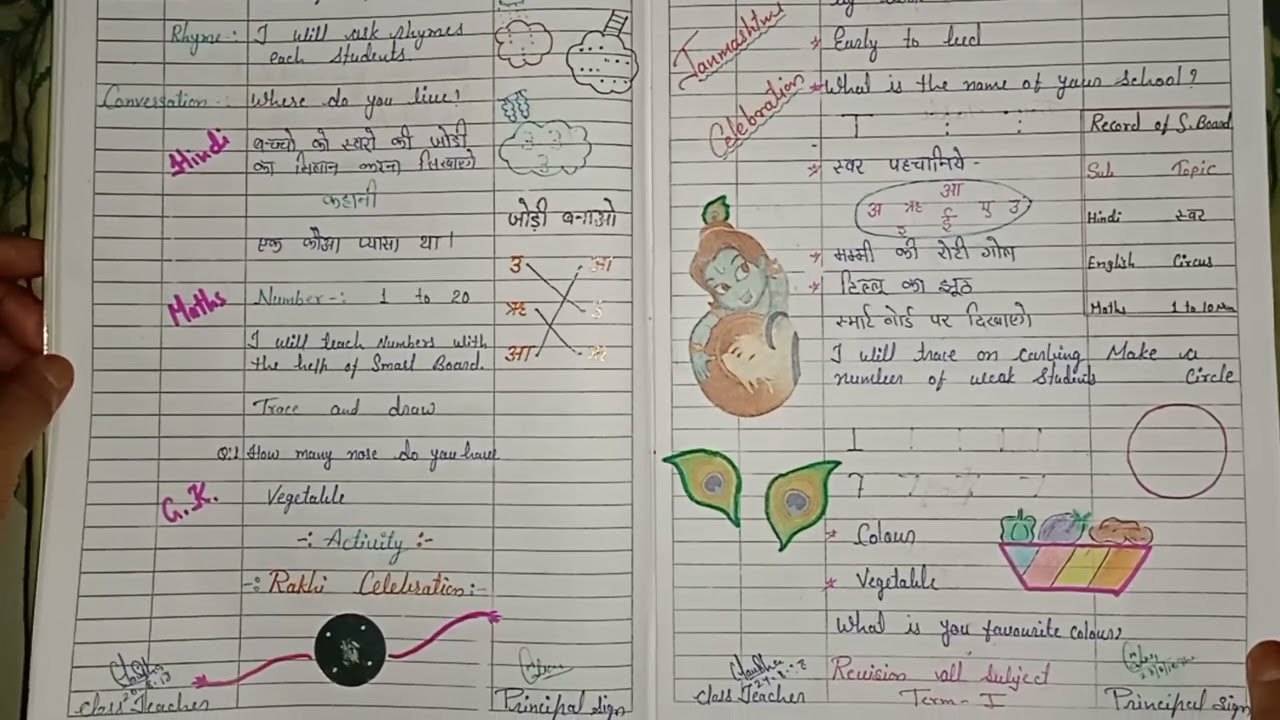 Rhyme:- I will ask rhymes
each students.
Conversation:- Where do you live?
Hindi
बच्चो को स्वरो की जोड़ी
का मिलान करना सिखाएगे
कहानी
एक कौआ प्यासा था।
जोड़ी बनाओ
उ आ
ऋ उ
आ ऋ
Maths Number-: 1 to 20
I will teach numbers with
the help of Smart Board.
Trace and draw
Q:1 How many nose do you have
G.K. Vegetable
-: Activity :-
-: Rakhi Celebration:-
Class Teacher
Principal Sign
Janmashtmi
Celebration
* Early to bed
* What is the name of your School?
Record of S.Board
Sub Topic
Hindi स्वर
English Circus
Maths 1 to 10
* स्वर पहचानिये -
आ
अ ऋ ई ए उ
इ
* मम्मी की रोटी गोल
* टिल्लू का झूठ
स्मार्ट बोर्ड पर दिखाएगे
I will trace on
number of weak Students
Make a
Circle
1
7
* Colour
* Vegetable
What is you favourite colour?
Revision all subject
Term-I
Class Teacher
Principal Sign